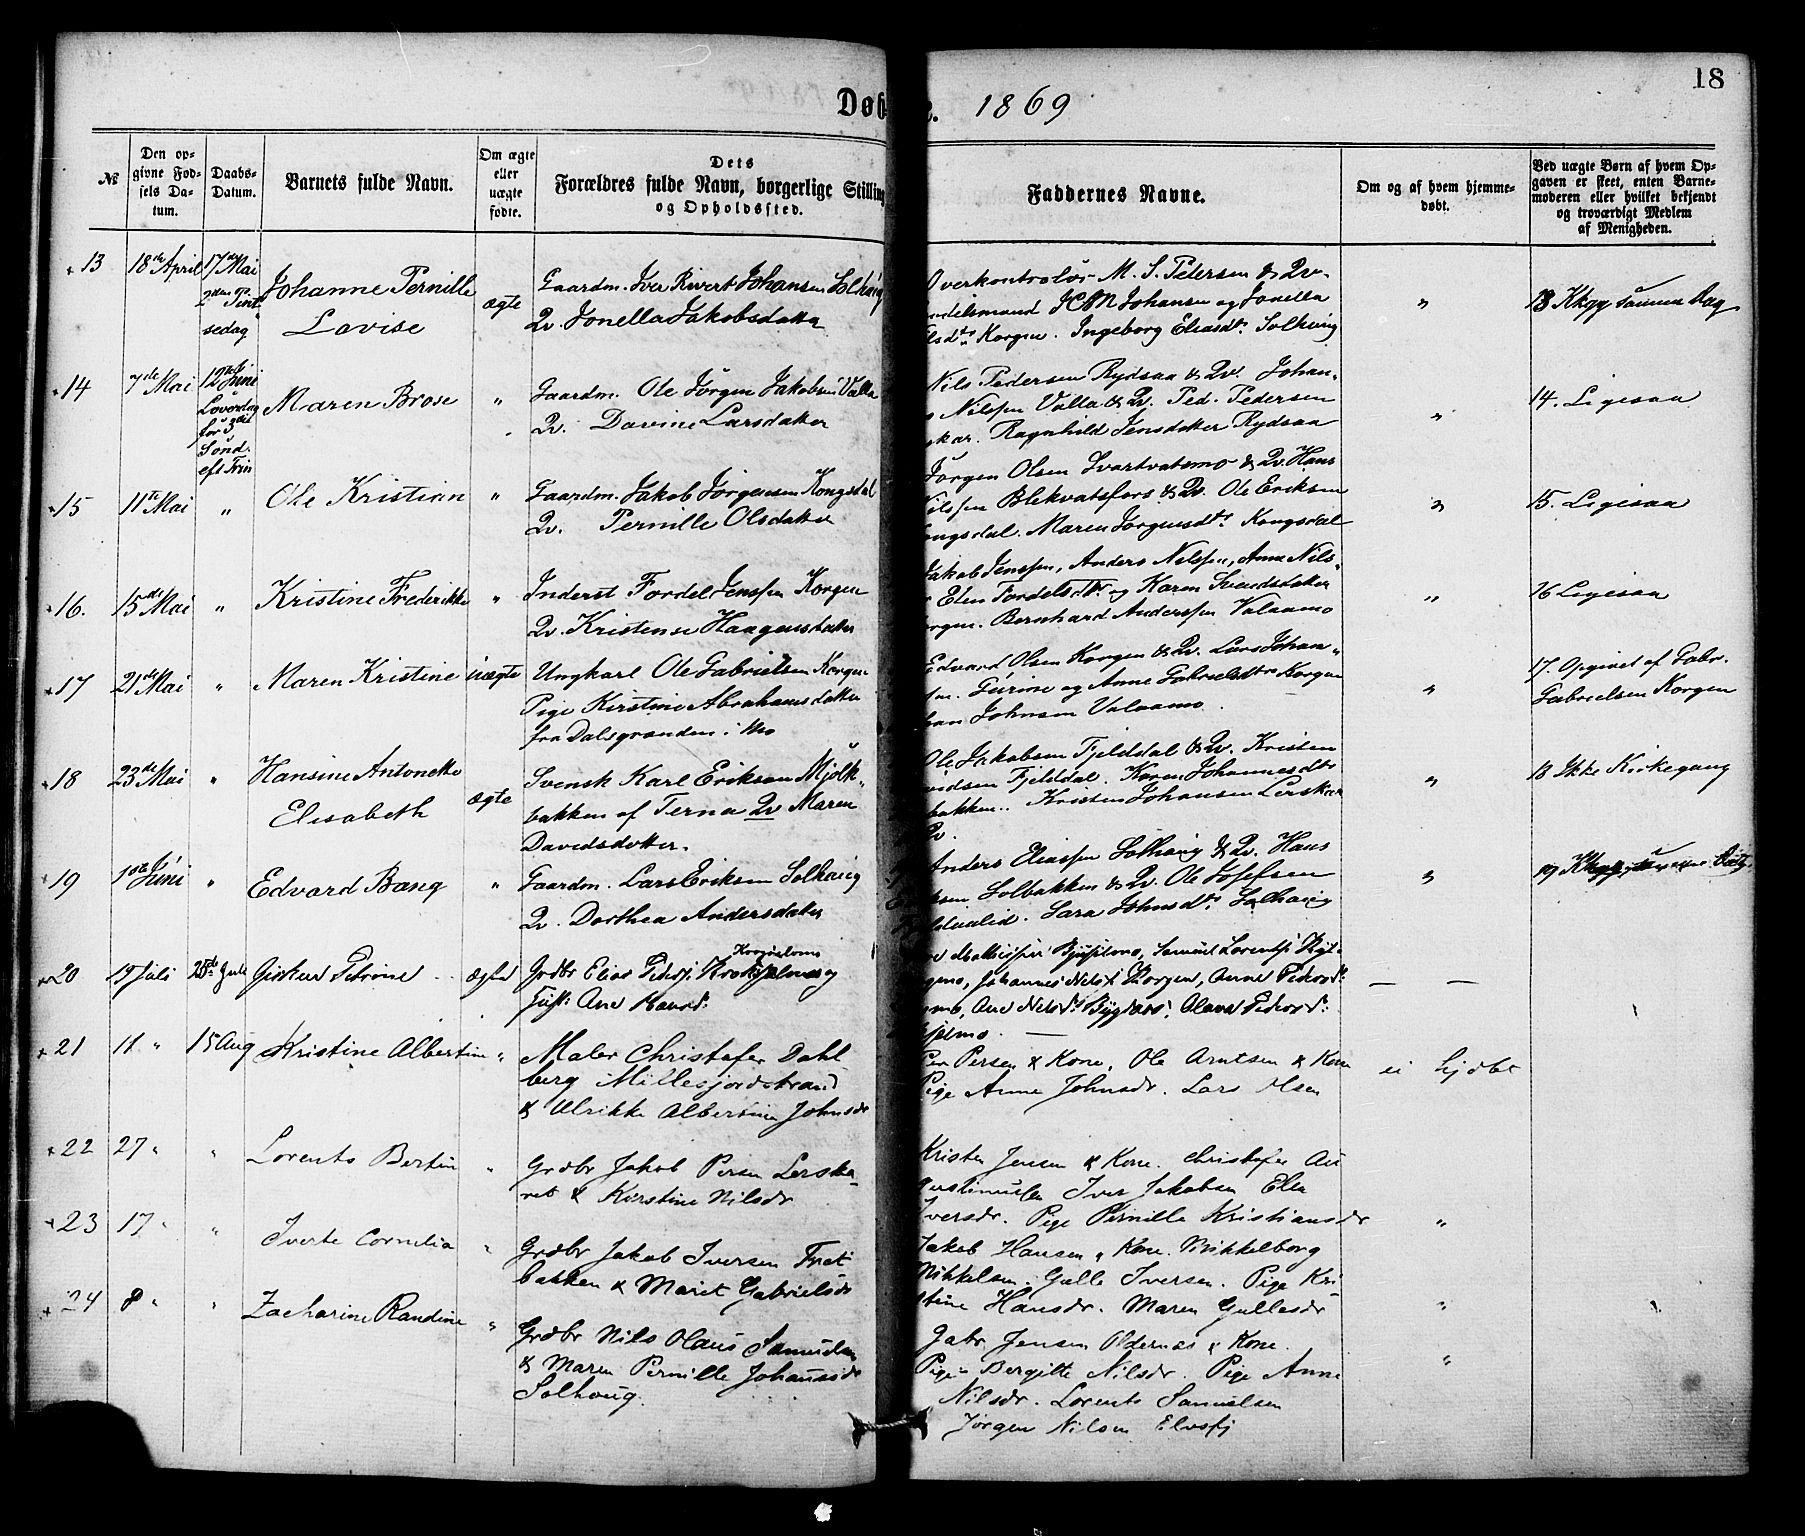 18
Døb e. 1869
№
Den opgivne Fødsels Datum.
Daabs-Datum.
Barnets fulde Navn.
Om ægte eller uægte fødte.
Dets Forældres fulde Navn, borgerlige Stilling og Opholdssted.
Faddernes Navne.
Om og af hvem hjemmedøbt.
Ved uægte Børn af hvem Opgaven er skeet, enten Barnemoderen eller hvilket bekjendt og troværdigt Medlem af Menigheden.
13 18de April 17de Mai
2den Pintsedag
Johanne Pernille
Lovise
ægte
Gaardm. Iver Rivert Johansen Solhaug
Qv. Jonella Jakobsdatter
Overkontrolør M. S. Petersen & Qv.
Johansen og Jonella
Korgen. Ingeborg Eliasdt. Solhaug
"
13 Kkgg samme Dag
14 7de Mai 12te Juni
Løverdag
før 3
Sønd.
eft Trin
Maren Brose
"
Gaardm. Ole Jørgen Jakobsen Valla
Qv. Davine Larsdatter
Nils Pedersen Rydsaa & Qv. Johan-
Nilssen Valla & Qv. Ped. Pedersen
Ragnhild Jensdatter Rydsaa
"
14. Ligesaa
15 11te Mai "
Ole Kristian
"
Gaardm. Jakob Jørgensen Kongsdal
Qv. Pernille Olsdatter
Jørgen Olsen Svartvatsmo & Qv. Hans
Nilssen Blekvatsfors & Qv. Ole Eriksen
ongsdal. Maren Jørgensdt. Kongsdal
"
15. Ligesaa
16. 15de Mai "
Kristine Frederikke
"
Inderst Fordel Jenssen Korgen
Qv. Kristense Haagensdatter
Jakob Jenssen, Anders Nilssen, Anne Nils-
Elen Fordelsdt. og Karen Svendsdatter
orgen. Bernhard Anderssen Valaamo
"
16 Ligesaa
17 21de Mai "
Maren Kristine
uægte
Ungkarl Ole Gabrielsen Korgen
Pige Kirstine Abrahamsdatter
fra Dalsgrænden i Mo
Edvard Olsen Korgen & Qv. Lars Johan-
sen. Gurine og Anne Gabrielsdtr Korgen
Johnsen Valaamo.
"
17. Opgivet af Fabr.
Gabrielsen Korgen
18 23de Mai "
Hansine Antonette
Elisabeth
ægte
Svensk Karl Eriksen Mjølk-
bakken af Terna Qv Maren
Davidsdatter.
Ole Jakobsen Fjelddal & Qv. Kristen
vidsen Fjelddal. Karen Johannesdt.
bakken. Kristen Johansen Lerskar
Qv.
"
18 Ikke Kirkegang
19 1ste Juni "
Edvard Bang
"
Gaardm. Lars Eriksen Solhaug
Qv. Dorthea Andersdatter
Anders Eliassen Solhaug & Qv. Hans
ksen Solbakken & Qv. Ole Josefsen
Sara Johnsdt. Solhaug
"
19 Kkgg samme Dag
20 19 Juli
Petrine
ægte
Grdbr Elias Peders.
og
Ane
Samuel Lorents.
Johannes Nils. Korgen, Anne Peders dt.
Ane Nilsd. Olava Pedersd.
— —
21 11 " 15 Aug
Kristine Albertine
"
Maler Christofer Dahl
berg Millesjordstrand
& Ulrikke Albertine Johnsdr
Per Persen & Kone, Ole Arntsen & Kone
Pige Anne Johnsdr. Lars Olsen
ei hjdbt
22 27 " "
Lorents Bertin
"
Grdbr Jakob Persen Lerska-
ret & Kirstine Nilsdr
Kristen Jensen & Kone. Christofer Au
gustinussen Iver Jakobsen Elen
Iversdr. Pige Pernille Kristiansdr
"
23 17 " "
Iverte Cornelia
"
Grdbr Jakob Iversen
bakken & Marit Gabrielsdr
Jakob Hansen & Kone. Mikkelborg
Mikkelsen. Gulle Iversen. Pige Kri-
stine Hansdr. Maren Gullesdr
"
24 8 " "
Zacharine Randine
"
Grdbr Nils Olaus Samuelsen
& Maren Pernille Johansdr
Solhaug.
Gabr Jensen Oldernæs & Kone.
Pige Bergitte Nilsdr. Pige Anne
Nilsdr. Lorents Samuelsen
Jørgen Nilsen
"